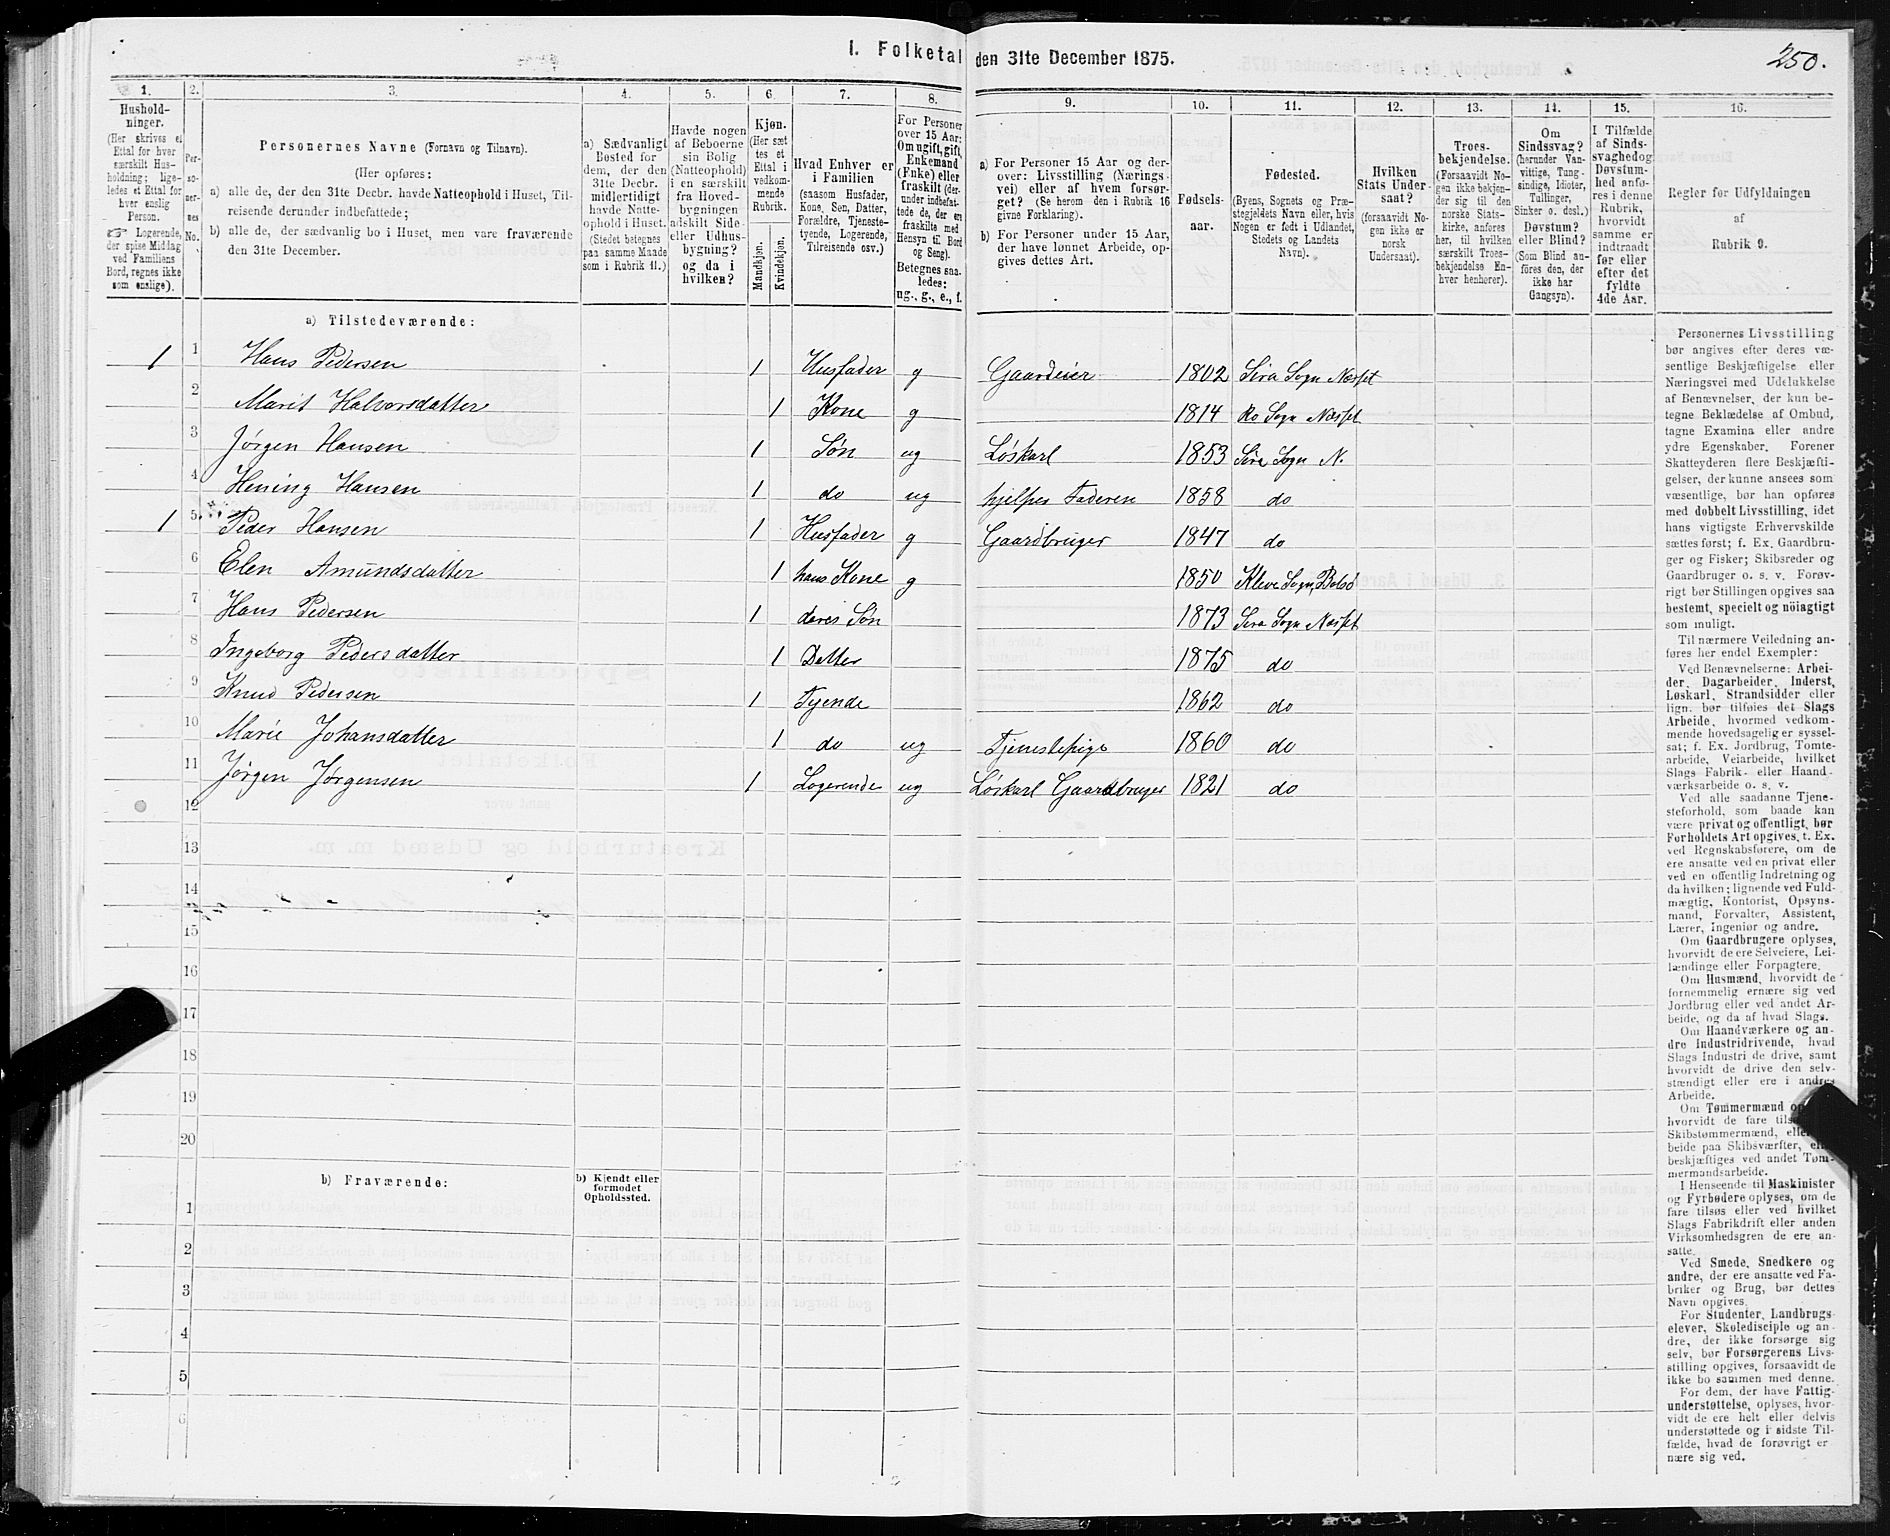 I. Folketal den 31te December 1875.
250.
1.
Hushold-
ninger.
(Her skrives et
Ettal for hver
særskilt Hus-
holdning; lige-
ledes et Ettal for
hver enslig
Person.
Logerende,
der spise Middag
ved Familiens
Bord, regnes ikke
som enslige).
2.
Per-
so-
ner-
nes
No.
3.
Personernes Navne (Fornavn og Tilnavn).
(Her opføres:
a) alle de, der den 31te Decbr. havde Natteophold i Huset, Til-
reisende derunder indbefattede;
b) alle de, der sædvanlig bo i Huset, men vare fraværende
den 31te December.
4.
a) Sædvanligt
Bosted for
dem, der den
31te Decbr.
midlertidigt
havde Natte-
ophold i Huset.
(Stedet betegnes
paa samme Maade
som i Rubrik 11.)
5.
Havde nogen
af Beboerne
sin Bolig
(Natteophold)
i en særskilt
fra Hoved-
bygningen
adskilt Side-
eller Udhus-
bygning?
og da i
hvilken?
6.
Kjøn.
(Her sæt-
tes et
Ettal i
vedkom-
mende
Rubrik.
Mandkjøn.
Kvindekjøn.
7.
Hvad Enhver er
i Familien
(saasom Husfader,
Kone, Søn, Datter,
Forældre, Tjeneste-
tyende, Logerende,
Tilreisende osv.)
8.
For Personer
over 15 Aar:
Om ugift, gift,
Enkemand
(Enke) eller
fraskilt (der-
under indbefat-
tede de, der ere
fraskilte med
Hensyn til Bord
og Seng).
Betegnes saa-
ledes:
ug., g., e., f.
9.
a) For Personer 15 Aar og der-
over: Livsstilling (Nærings-
vei) eller af hvem forsør-
get? (Se herom den i Rubrik 16
givne Forklaring).
b) For Personer under 15 Aar,
der have lønnet Arbeide, op-
gives dettes Art.
10.
Fødsels-
aar.
11.
Fødested.
(Byens, Sognets og Præ-
stegjeldets Navn eller, hvis
Nogen er født i Udlandet,
Stedets og Landets
Navn).
12.
Hvilken
Stats Under-
saat?
(forsaavidt No-
gen ikke er
norsk
Undersaat).
13.
Troes-
bekjendelse.
(Forsaavidt No-
gen ikke bekjen-
der sig til den
norske Stats-
kirke, anføres
her, til hvilken
særskilt Troes-
bekjendelse En-
hver henhører).
14.
Om
Sindssvag?
(herunder Van-
vittige, Tung-
sindige, Idioter,
Tullinger,
Sinker o. desl.)
Døvstum?
eller Blind?
(Som Blind an-
føres den, der
ikke har
Gangsyn).
15.
I Tilfælde
af Sinds-
svaghed og
Døvstum-
hed anfø-
res i denne
Rubrik,
hvorvidt
samme er
indtraadt
før eller
efter det
fyldte
4de Aar.
16.
Regler for Udfyldningen
af
Rubrik 9.
a) Tilstedeværende:
1 1 Hans Pedersen 1 Husfader g Gaardeier 1802 Sira Sogn Næsset
2 Marit Halvorsdatter 1 Kone g 1814 Rø Sogn Næsset
3 Jørgen Hansen 1 Søn ug Løskarl 1853 Sira Sogn N.
4 Hening Hansen 1 do ug hjelper Faderen 1858 do
1 5 Peder Hansen 1 Husfader g Gaardbruger 1847 do
6 Elen Amundsdatter 1 hans Kone g 1850 Kleve Sogn, Bolsø
7 Hans Pedersen 1 deres Søn 1873 Sira Sogn Næsset
8 Ingeborg Pedersdatter 1 Datter 1875 do
9 Knud Pedersen 1 Tyende 1862 do
10 Marie Johansdatter 1 do ug Tjenestepige 1860 do
11 Jørgen Jørgensen 1 Logerende ug Løskarl Gaardbruger 1821 do
12
13
14
15
16
17
18
19
20
b) Fraværende:
b) Kjendt eller
formodet
Opholdssted.
1
2
3
4
5
6
Personernes Livsstilling
bør angives efter deres væ-
sentlige Beskjæftigelse eller
Næringsvei med Udelukkelse
af Benævnelser, der kun be-
tegne Beklædelse af Ombud,
tagne Examina eller andre
ydre Egenskaber. Forener
Skatteyderen flere Beskjæfti-
gelser, der kunne ansees som
væsentlige, bør han opføres
med dobbelt Livsstilling, idet
hans vigtigste Erhvervskilde
sættes først; f. Ex. Gaardbru-
ger og Fisker; Skibsreder og
Gaardbruger o. s. v. Forøv-
rigt bør Stillingen opgives saa
bestemt, specielt og nöiagtigt
som muligt.
Til nærmere Veiledning an-
føres her endel Exempler:
Ved Benævnelserne: Arbei-
der, Dagarbeider, Inderst,
Løskarl, Strandsidder eller
lign. bør tilføies det Slags
Arbeide, hvormed vedkom-
mende hovedsagelig er syssel-
sat; f. Ex. Jordbrug, Tomte-
arbeide, Veiarbeide, hvilket
Slags Fabrik- eller Haand-
værksarbeide o. s. v.
Ved alle saadanne Tjene-
steforhold, som baade kan
være privat og offentligt, bør
Forholdets Art opgives, t. Ex.
ved Regnskabsførere, om de
ere ansatte ved en privat eller
ved en offentlig Indretning og
da hvilken; lignende ved Fuld-
mægtig, Kontorist, Opsyns-
mand, Forvalter, Assistent,
Lærer, Ingeniør og andre.
Om Gaardbrugere oplyses,
hvorvidt de ere Selveiere, Lei-
lændinge eller Forpagtere.
Om Husmænd, hvorvidt de
fornemmelig ernære sig ved
Jordbrug eller ved andet Ar-
beide, og da af hvad Slags.
Om Haandværkere og an-
dre Industridrivende, hvad
Slags Industri de drive, samt
hvorvidt de drive den selv-
stændigt eller ere i andres
Arbeide.
Om Tømmermænd op
hvorvidt de fare tils
Skibstømmermænd, elle
beide paa Skibsværfter, el
beskjæftiges ved andet Tøm-
mermandsarbeide.
I Henseende til Maskinister
og Fyrbødere oplyses, om de
fare tilsøs eller ved hvilket
Slags Fabrikdrift eller anden
Virksomhedsgren de ere an-
satte.
Ved Smede, Snedkere og
andre, der ere ansatte ved Fa-
briker og Brug, bør dettes
Navn opgives.
For Studenter, Landbrugs-
elever, Skoledisciple og an-
dre, der ikke forsørge sig
selv, bør Forsørgerens Livs-
stilling opgives, forsaavidt de
ikke bo sammen med denne.
For dem, der have Fattig-
understøttelse, oplyses, hvor-
vidt de ere helt eller delvis
understøttede og i sidste Til-
fælde, hvad de forøvrigt er-
nære sig ved.